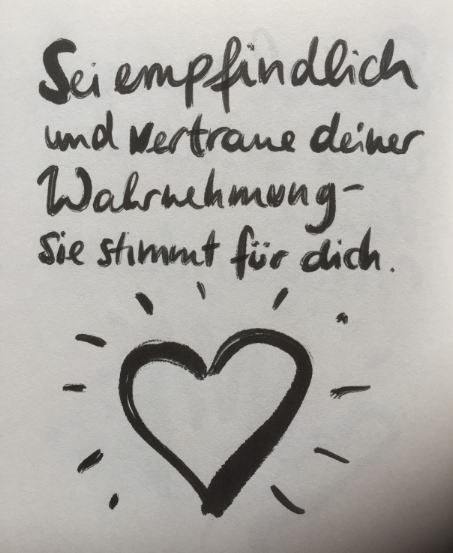 Sei empfindlich
und vertraue deiner
Wahrnehmung-
Sie stimmt für dich.